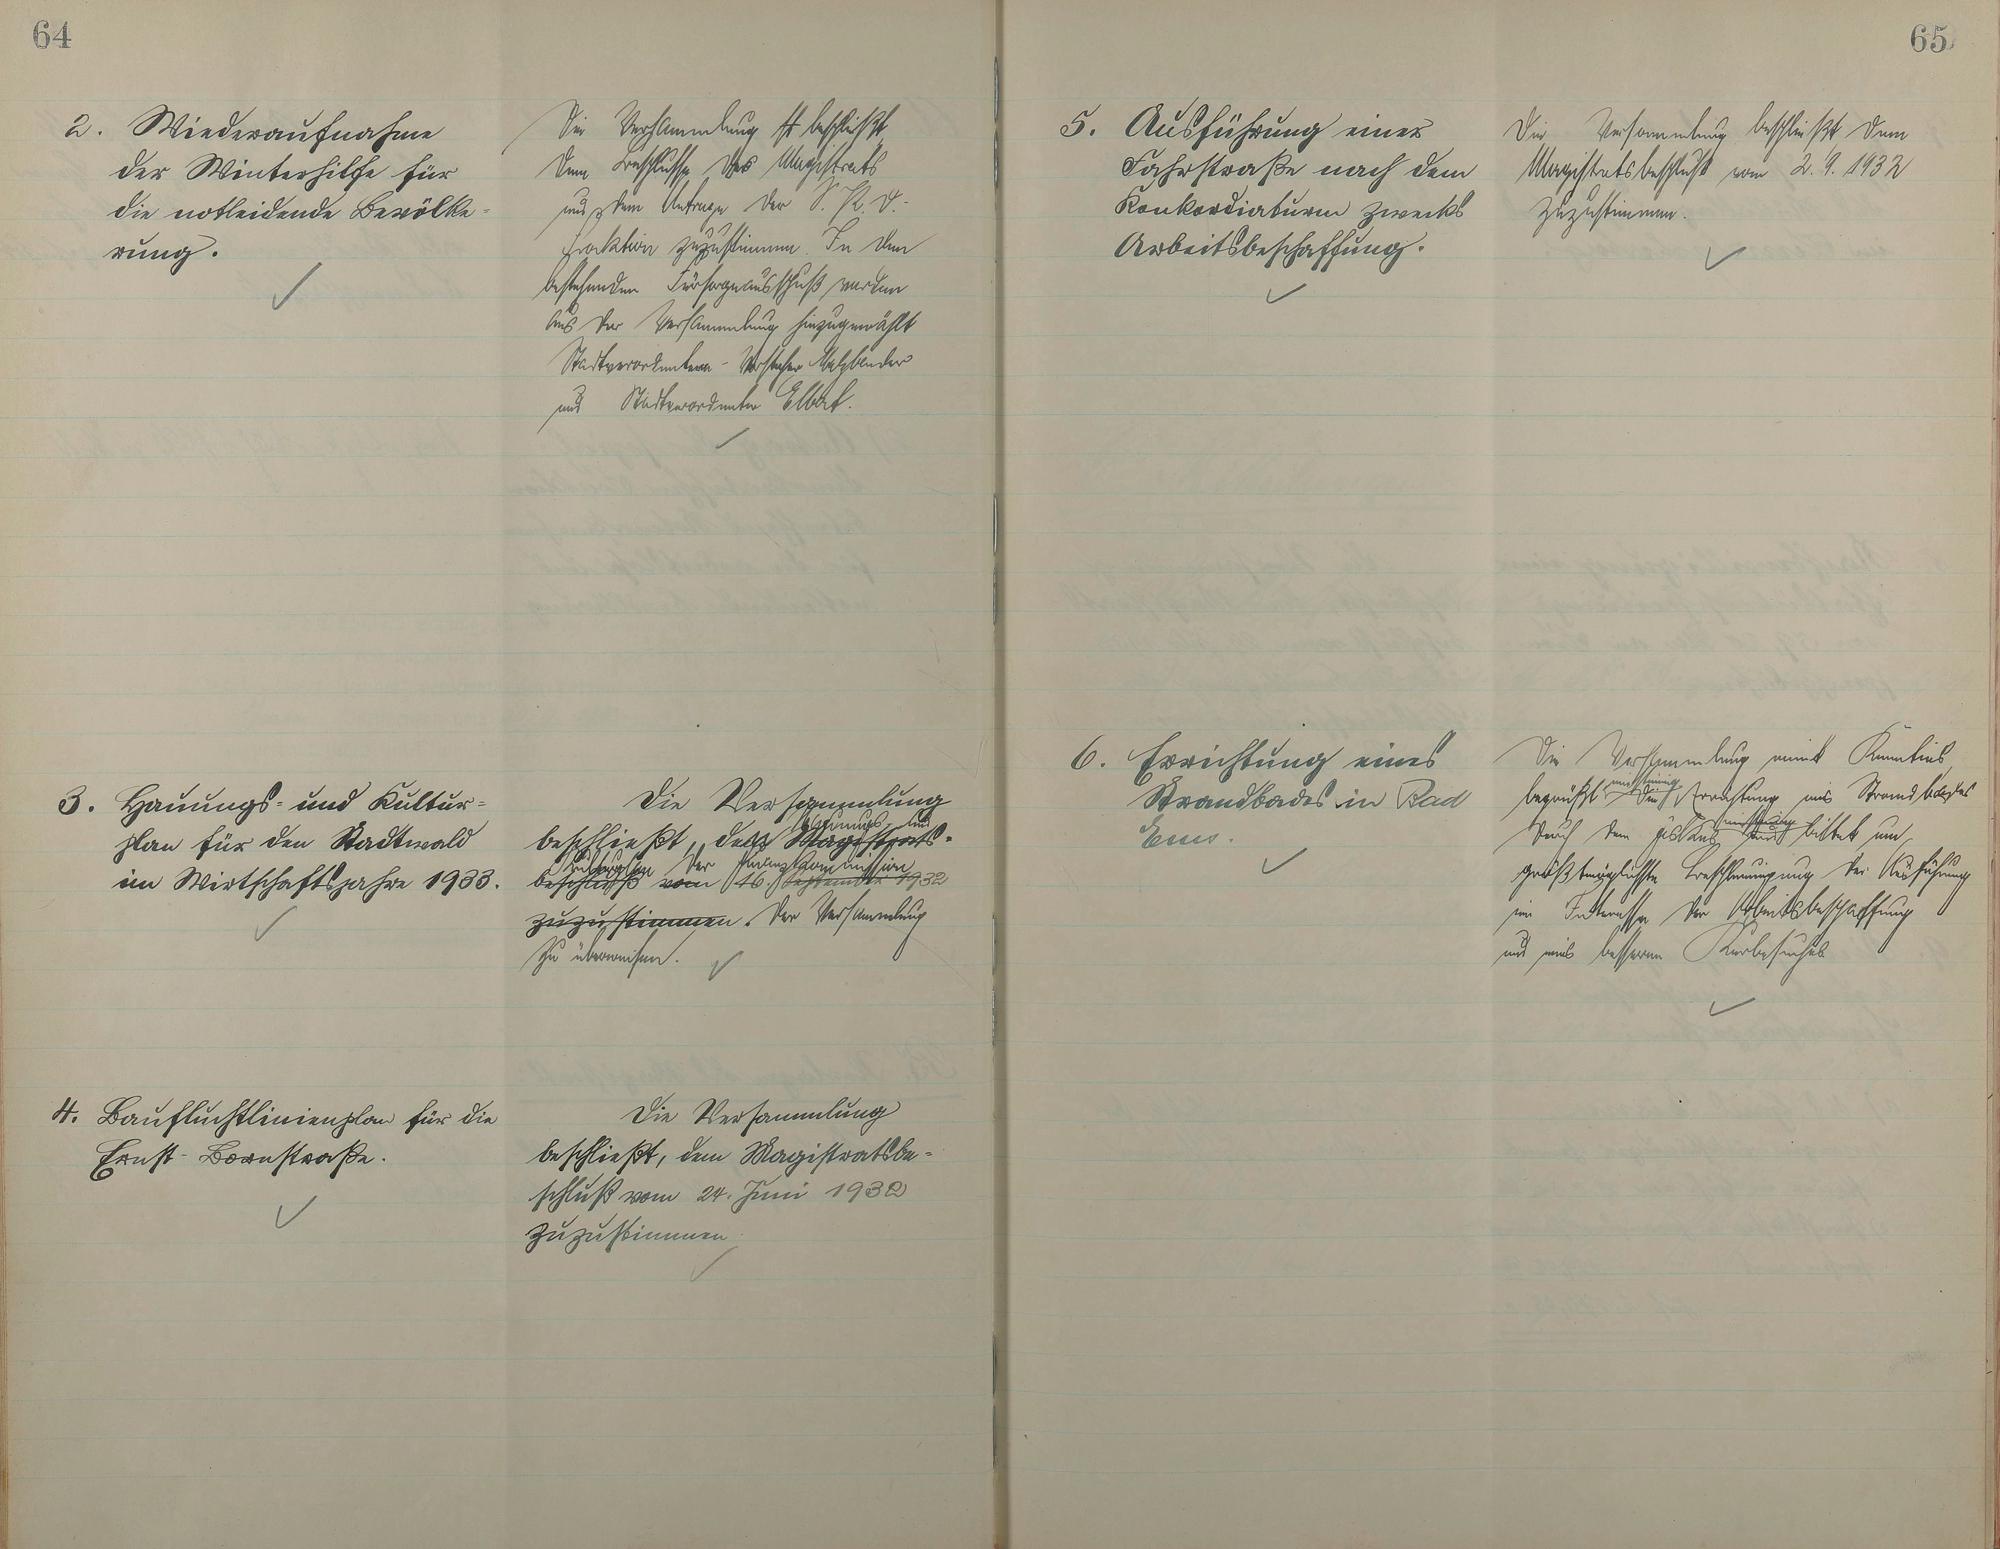 64
2. Wiederaufnahme
der Winterhilfe für
die notleidende Bevölke-
rung.
Die Versammlung beschließt
dem Beschlusse des Magistrats
und dem Antrage der S. P. D.-
Fraktion zuzustimmen. In den
bestehenden Fürsorgeausschuß werden
aus der Versammlung hinzugewählt
Stadtverordneten-Vorsteher
und Stadtverordneter Elbert.
3. Hauungs- und Kultur-
plan für den Stadtwald
im Wirtschaftsjahre 1933.
Die Versammlung
Hauungs- und
beschließt, den Magistrats-
Kulturplan der Finanzkommission
beschluß vom 16. September 1932
zuzustimmen. der Versammlung
zu überweisen.
4. Baufluchtlinienplan für die
Ernst-Bornstraße.
Die Versammlung
beschließt, dem Magistratsbe-
schluß vom 24. Juni 1932
zuzustimmen.
65
5. Ausführung einer
Fahrstraße nach dem
Konkordiaturm zwecks
Arbeitsbeschaffung.
Die Versammlung beschließt dem
Magistratsbeschluß vom 2. 9. 1932
zuzustimmen.
6. Errichtung eines
Strandbades in Bad
Ems.
Die Versammlung nimmt Kenntnis,
einstimmig
begrüßt die Errichtung eines Strandbades
durch den Fiskus und bittet um
größtmöglichste Beschleunigung der Ausführung
im Interesse der Arbeitsbeschaffung
und eines besseren Kurbesuches